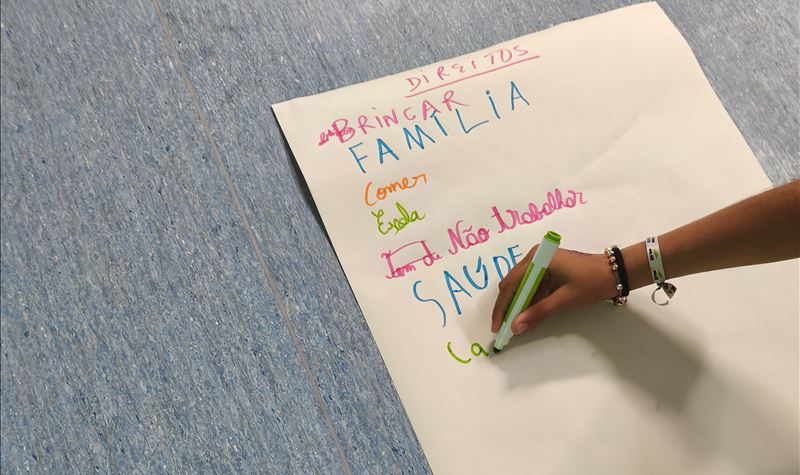 DIREITOS
BRINCAR
FAMÍLIA
Comer
Escola
de Não trabalhar
SAÚDE
Ca